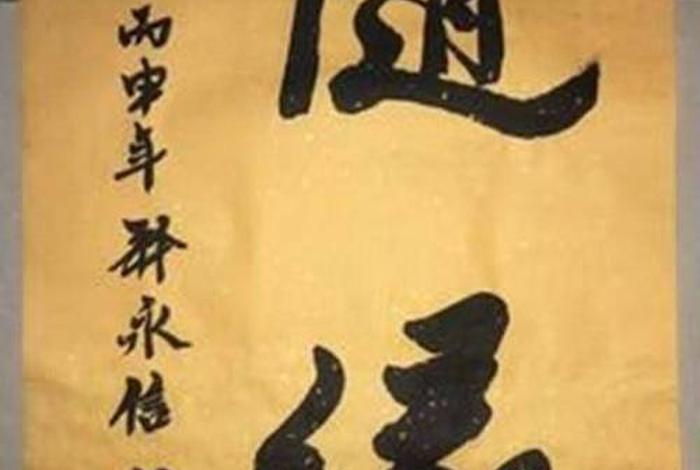 随缘
丙申年 释永信